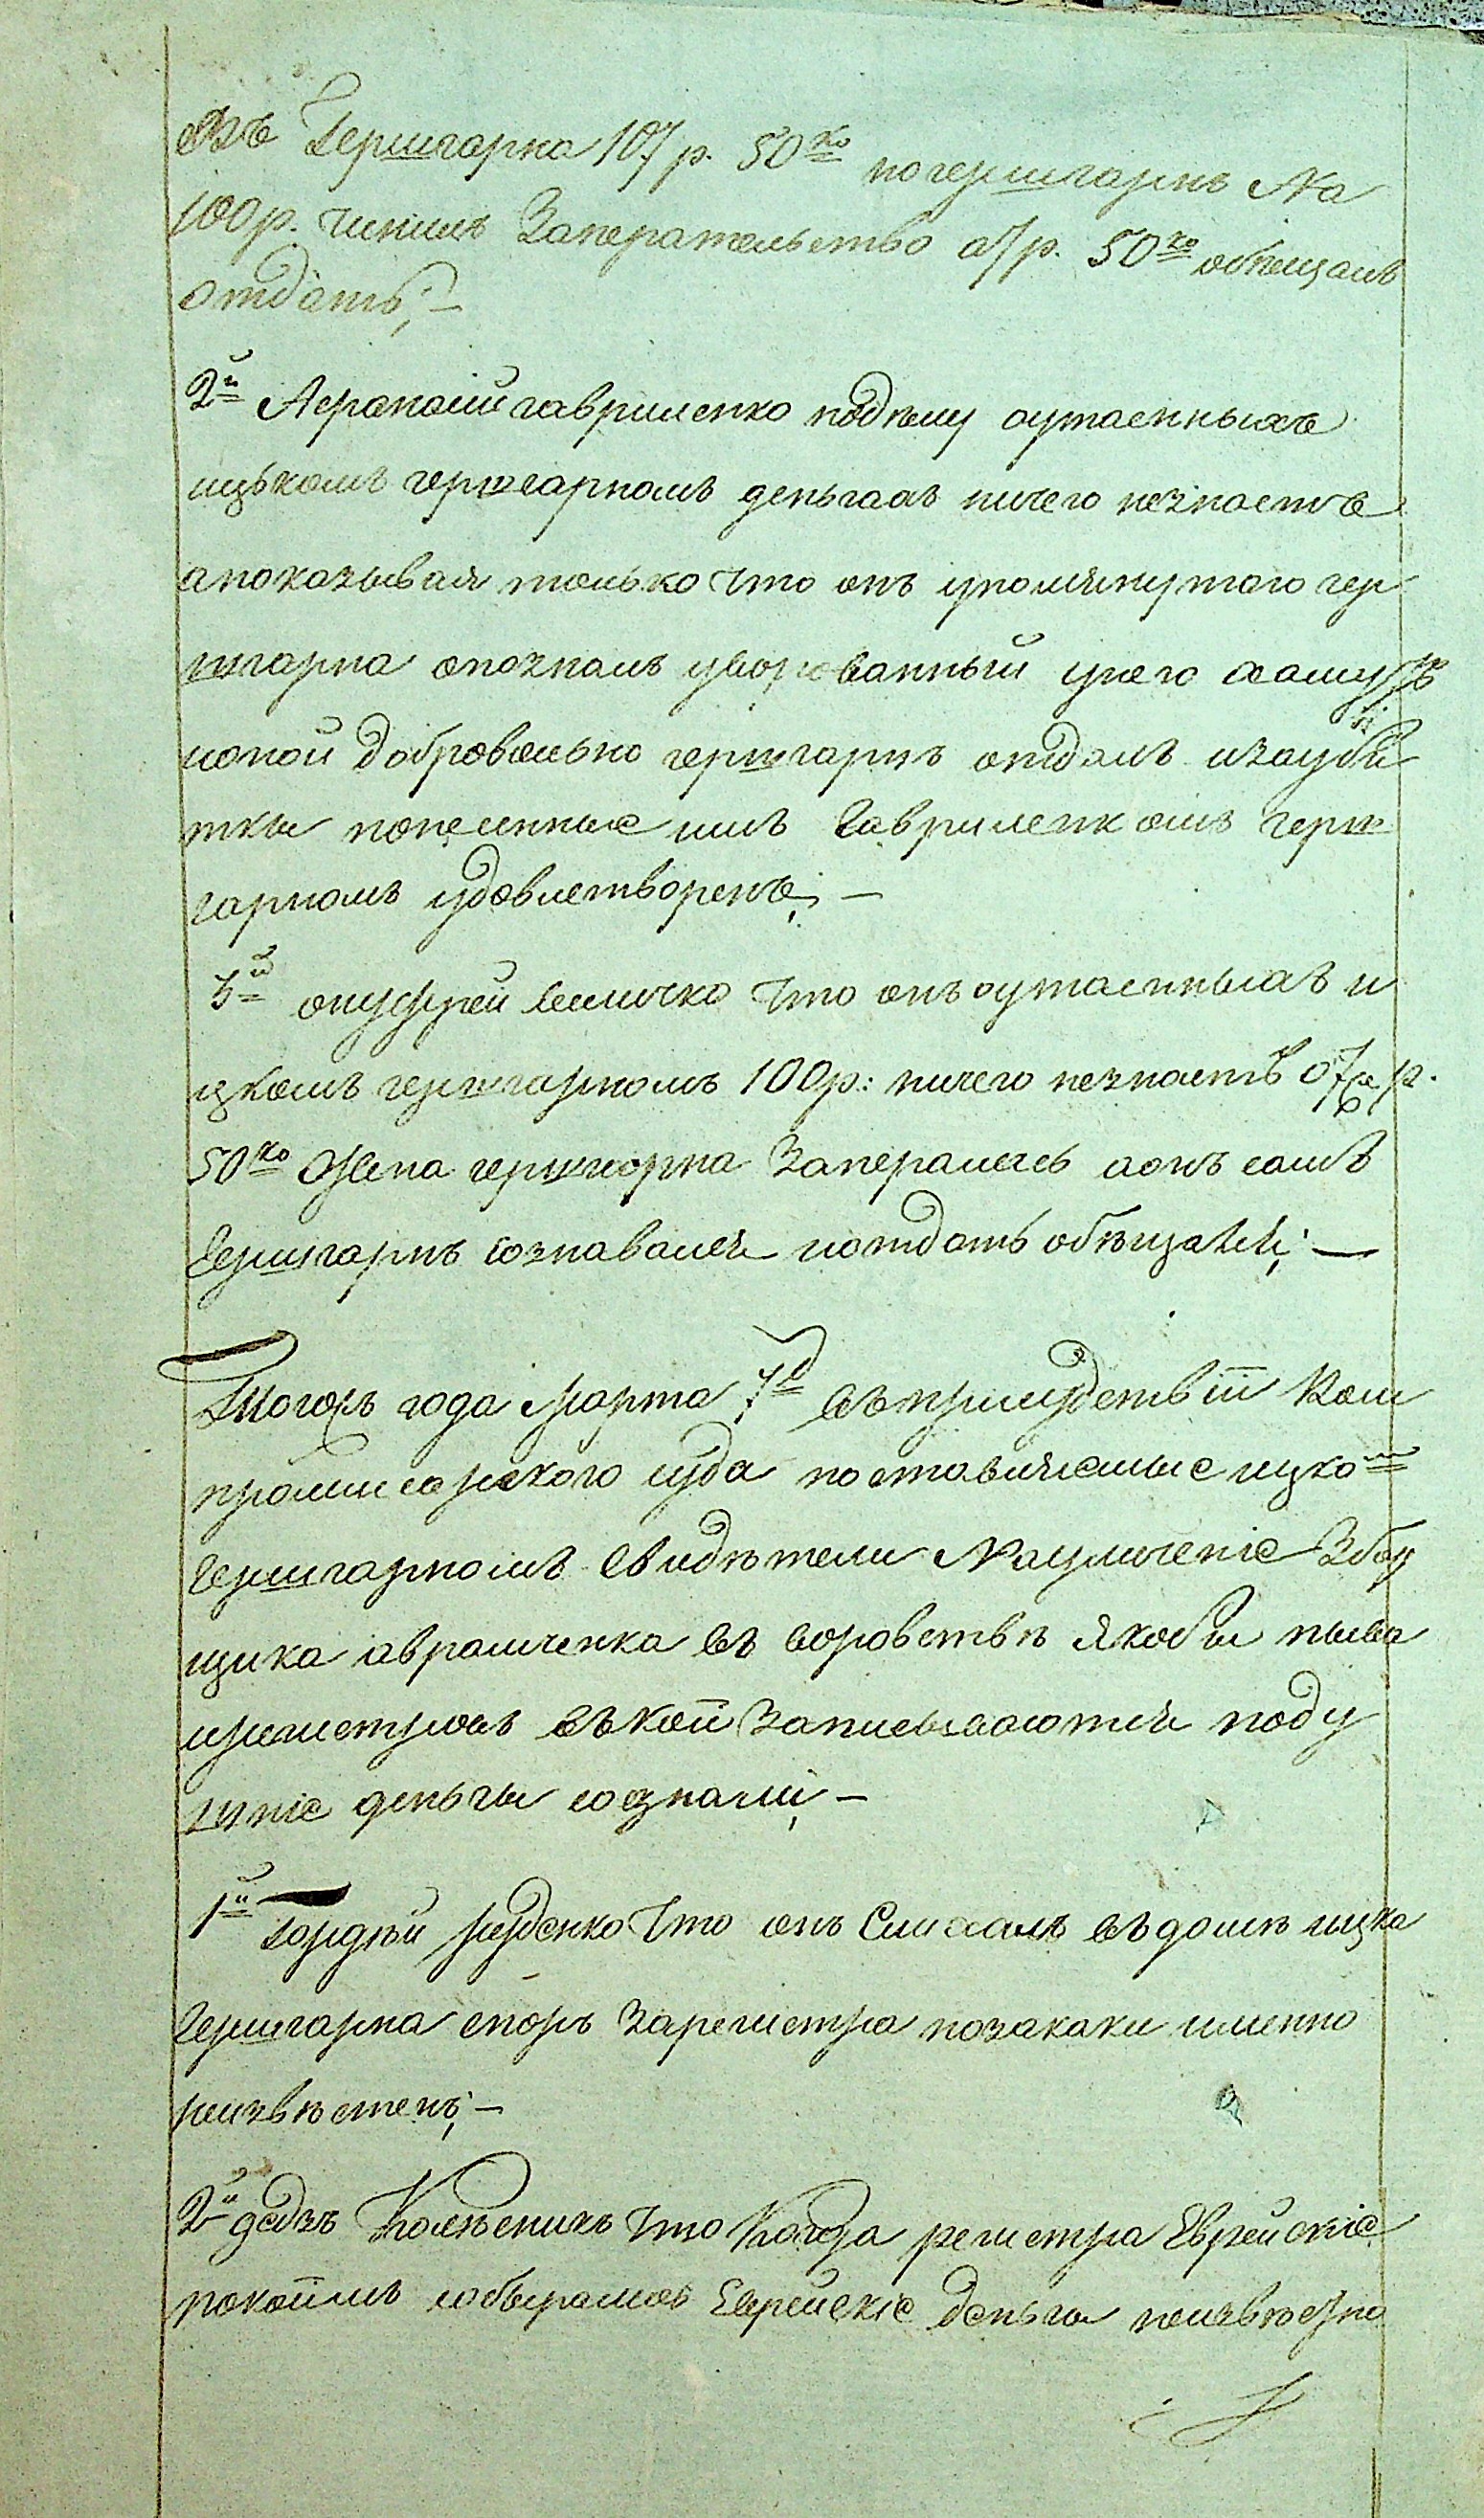 Гершгарна 107 р. 50 ко но гершгарнъ На
100 р. чинилъ Заперательство а 7 р. 50 ко обѣщалъ
отдать;—
2й Афанасій гавриленко подѣлу оутаенныхъ
ицькомъ гершгарномъ деньгахъ ничего незнаетъ
апоказывая только что онъ упомянутого гер
шгарна опозналъ уворованный унего хамутъ
кой доброволно гершгарнъ отдалъ изаубы
тки понесенные имъ Гавриленкомъ герш
гарномъ удовлетворенъ;—
3й онуфрей величко что онъ оутаенныхъ и
цкомъ гершгарномъ 100 р: ничего незнаетъ о 7 р.
50 ко Жена гершгорна Заперамсь аонъ самъ
Гершгарнъ сознавался иотдать обѣщался;—
Тогожъ года Марта 7д въприсудствіи Ком
промисарского суда поставляемые ицком
Гершгарномъ Свидѣтели Науличеніе Збор
щика авраменка въ воровствѣ якобы имъ
регистровъ въкой Записываются поду
шніе деньгы сознали;—
1й Гордѣй руденко что онъ Слихалъ въдомѣ ицка
Гершгарна споръ Зарегистра нозакаки именно
неизвѣстенъ;—
2й дедзъ Колѣсникъ что Когда регистра Еврейскіе
покоимъ собыралисъ Еврейскіе деньгы неизвѣсно